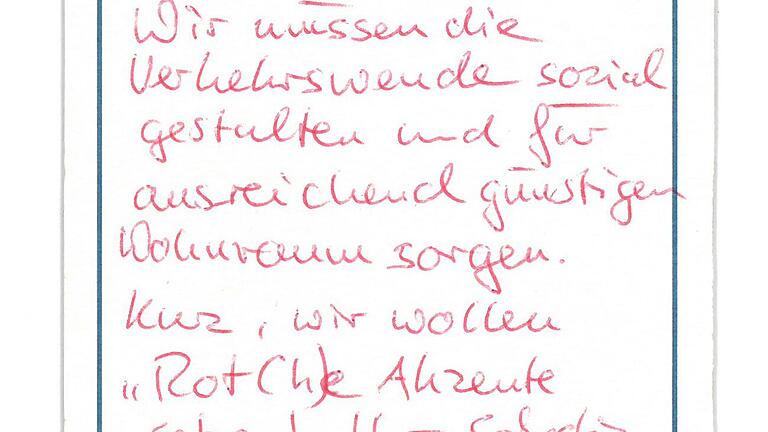 Wir müssen die
Verkehrswende sozial
gestalten und für
ausreichend günstigen
Wohnraum sorgen.
Kurz, wir wollen
„Rot(h)e Akzente